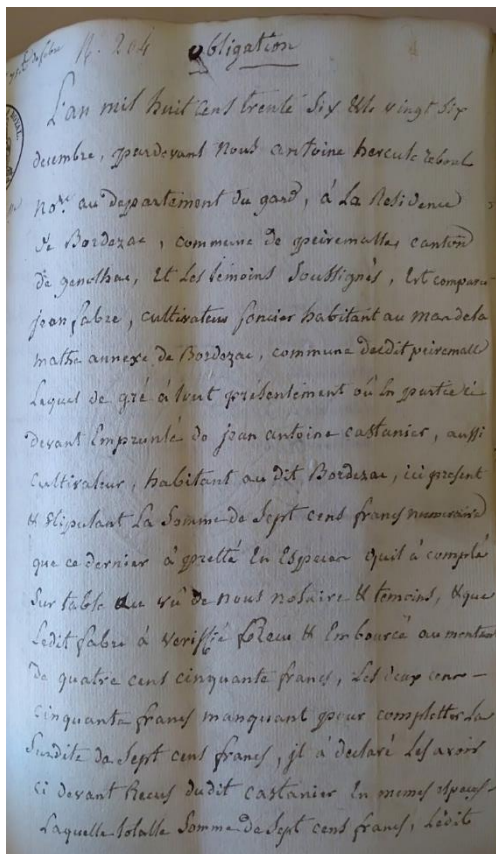 N.º 204 obligation
L'an mil huit cens trente Six & le vingt Six
decembre, pardevant Nous antoine hercule reboul
No.re au departement du gard, á La Residence
de Bordezac, commune de peiremalle, canton
de genolhac, et Les temoins Soussignés, Est comparu
jean fabre, cultivateur foncier habitant au mas de la
mathe annexe de Bordezac, commune dudit peiremalle
Lequel de gré á tout présentement où En partie ci
devant Emprunté de jean antoine castanier, aussi
Cultivateur, habitant au dit Bordezac, ici present
& Stipulant La Somme de Sept cens francs numeraire
que ce dernier á pretté En Especes quil á compté
Sur table au vû de nous notaire & temoins, & que
Ledit fabre á verifié Recu & Emboursé au montant
De quatre cens cinquante francs, Les deux cens –
cinquante francs manquant pour completter La
Susdite de Sept cens francs, jl á déclaré Les avoir
ci devant Recus dudit castanier En memes especes –
Laquelle totalle Somme de Sept cens francs, Ledit